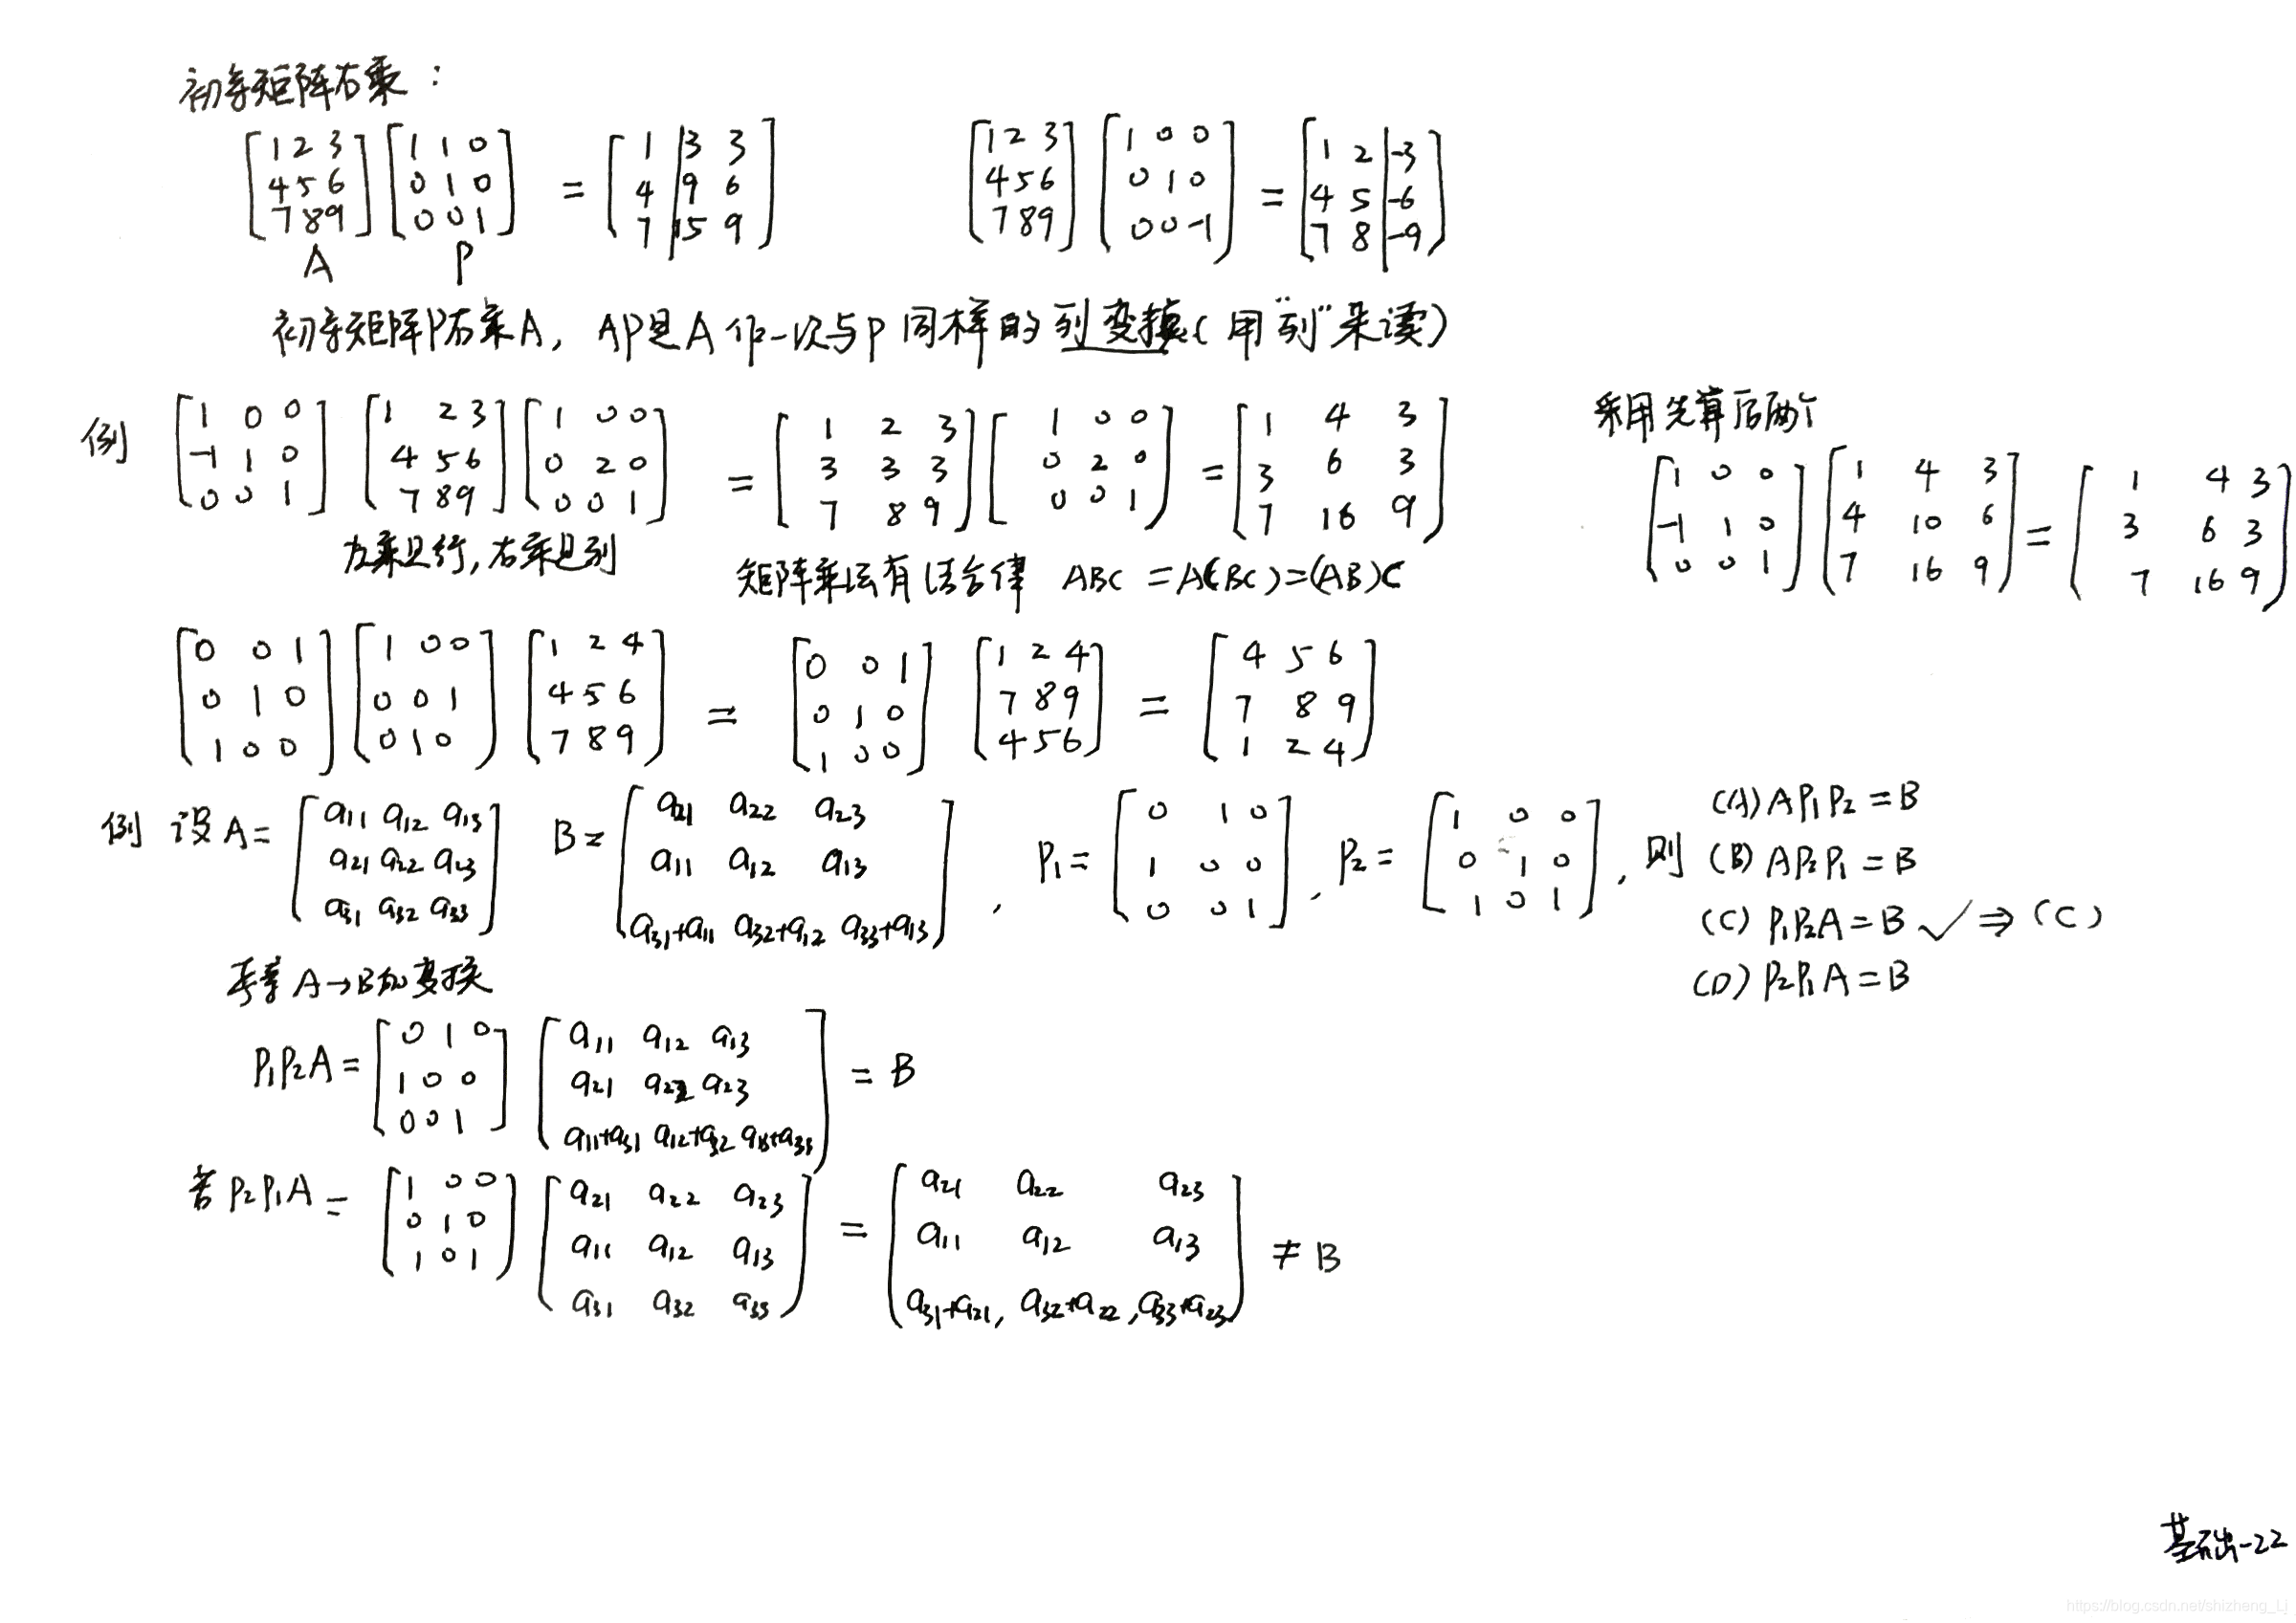 初等矩阵右乘:
[1 2 3; 4 5 6; 7 8 9] [1 1 0; 0 1 0; 0 0 1] = [1 3 3; 4 9 6; 7 15 9]  [1 2 3; 4 5 6; 7 8 9] [1 0 0; 0 1 0; 0 0 -1] = [1 2 -3; 4 5 -6; 7 8 -9]
A P
初等矩阵P右乘A, AP是A作一次与P同样的列变换(用"列"来读)
采用先算后两个
例 [1 0 0; -1 1 0; 0 0 1] [1 2 3; 4 5 6; 7 8 9] [1 0 0; 0 2 0; 0 0 1] = [1 2 3; 3 3 3; 7 8 9] [1 0 0; 0 2 0; 0 0 1] = [1 4 3; 3 6 3; 7 16 9]
[1 0 0; -1 1 0; 0 0 1] [1 4 3; 4 10 6; 7 16 9] = [1 4 3; 3 6 3; 7 16 9]
左乘是行,右乘是列
矩阵乘法有结合律 ABC = A(BC) = (AB)C
[0 0 1; 0 1 0; 1 0 0] [1 0 0; 0 0 1; 0 1 0] [1 2 4; 4 5 6; 7 8 9] = [0 0 1; 0 1 0; 1 0 0] [1 2 4; 7 8 9; 4 5 6] = [4 5 6; 7 8 9; 1 2 4]
例 设A = [a11 a12 a13; a21 a22 a23; a31 a32 a33] B = [a21 a22 a23; a11 a12 a13; a31+a11 a32+a12 a33+a13], P1 = [0 1 0; 1 0 0; 0 0 1], P2 = [1 0 0; 0 1 0; 1 0 1], 则
(A) AP1P2 = B
(B) AP2P1 = B
(C) P1P2A = B ✓ ⇒ (C)
(D) P2P1A = B
A→B的变换
P1P2A = [0 1 0; 1 0 0; 0 0 1] [a11 a12 a13; a21 a22 a23; a11+a31 a12+a32 a13+a33] = B
若P2P1A = [1 0 0; 0 1 0; 1 0 1] [a21 a22 a23; a11 a12 a13; a31 a32 a33] = [a21 a22 a23; a11 a12 a13; a31+a21, a32+a22, a33+a23] ≠ B
基础-22
https://blog.csdn.net/shizheng_Li